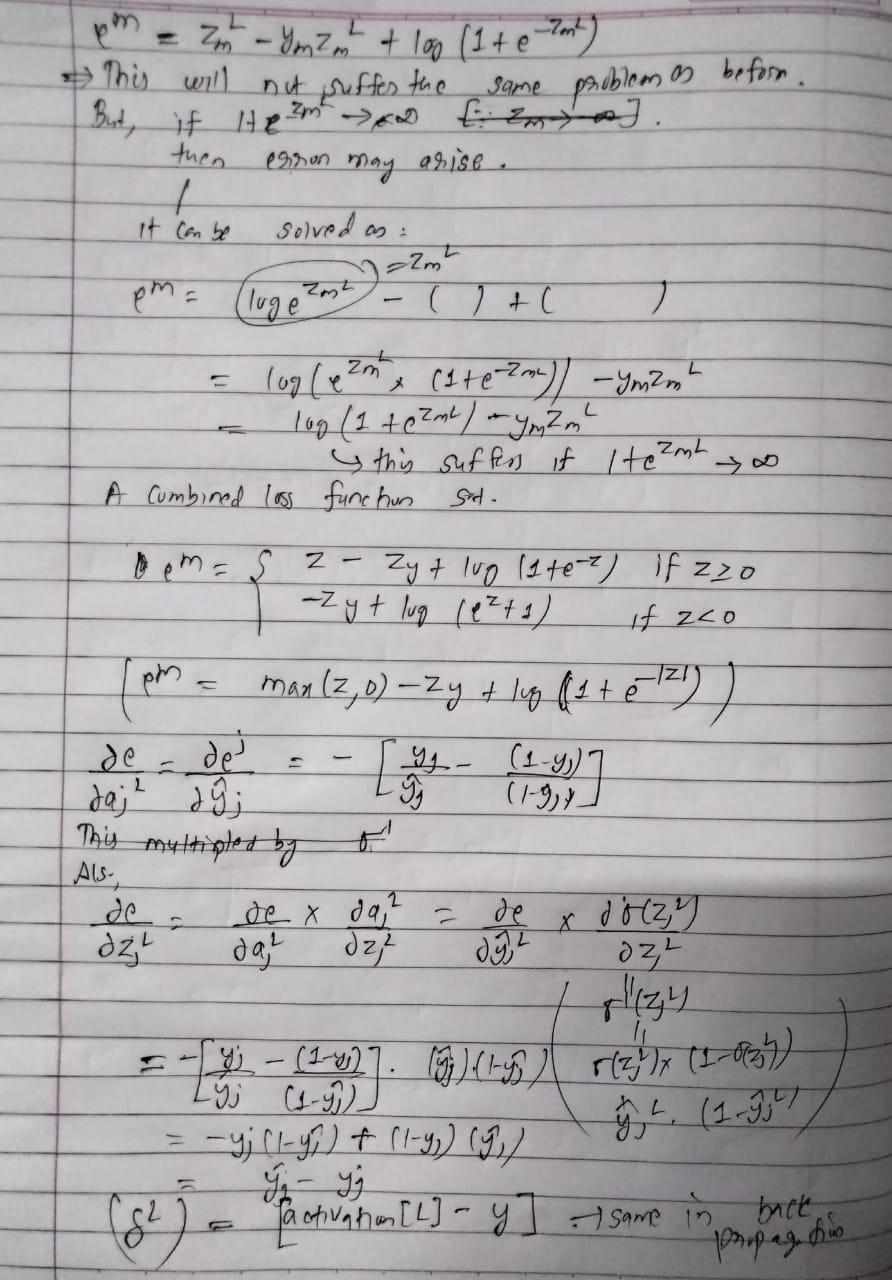 e^m = z_m^L - y_m z_m^L + log (1 + e^{-z_m^L})
⇒ This will not suffer the same problem as before.
But, if 1+e^{-z_m^L} → ∞ [∵ z_m → ∞].
then error may arise.
It can be solved as :
e^m = (log e^{z_m^L}) = z_m^L - ( ) + ( )
= log (e^{z_m^L} × (1+e^{-z_m^L})) - y_m z_m^L
= log (1 + e^{z_m^L}) - y_m z_m^L
↳ this suffers if 1+e^{z_m^L} → ∞
A combined loss function s.t.
e^m = { z - zy + log (1+e^{-z}) if z≥0
-zy + log (e^z+1) if z<0
( e^m = max(z,0) - zy + log (1 + e^{-|z|}) )
∂e/∂a_j^L = ∂e^j/∂ŷ_j = - [ y_j/ŷ_j - (1-y_j)/(1-ŷ_j) ]
This multipled by σ'
Als,
∂e/∂z_j^L = ∂e/∂a_j^L × ∂a_j^L/∂z_j^L = ∂e/∂ŷ_j^L × ∂σ(z_j^L)/∂z_j^L
σ'(z_j^L)
||
= - [ y_j/ŷ_j - (1-y_j)/(1-ŷ_j) ] . (ŷ_j).(1-ŷ_j) ( σ(z_j^L) × (1-σ(z_j^L))
ŷ_j^L . (1-ŷ_j^L) )
= -y_j (1-ŷ_j) + (1-y_j) (ŷ_j)
= ŷ_j - y_j
(δ^L) = [activation[L] - y] → same in back propagation